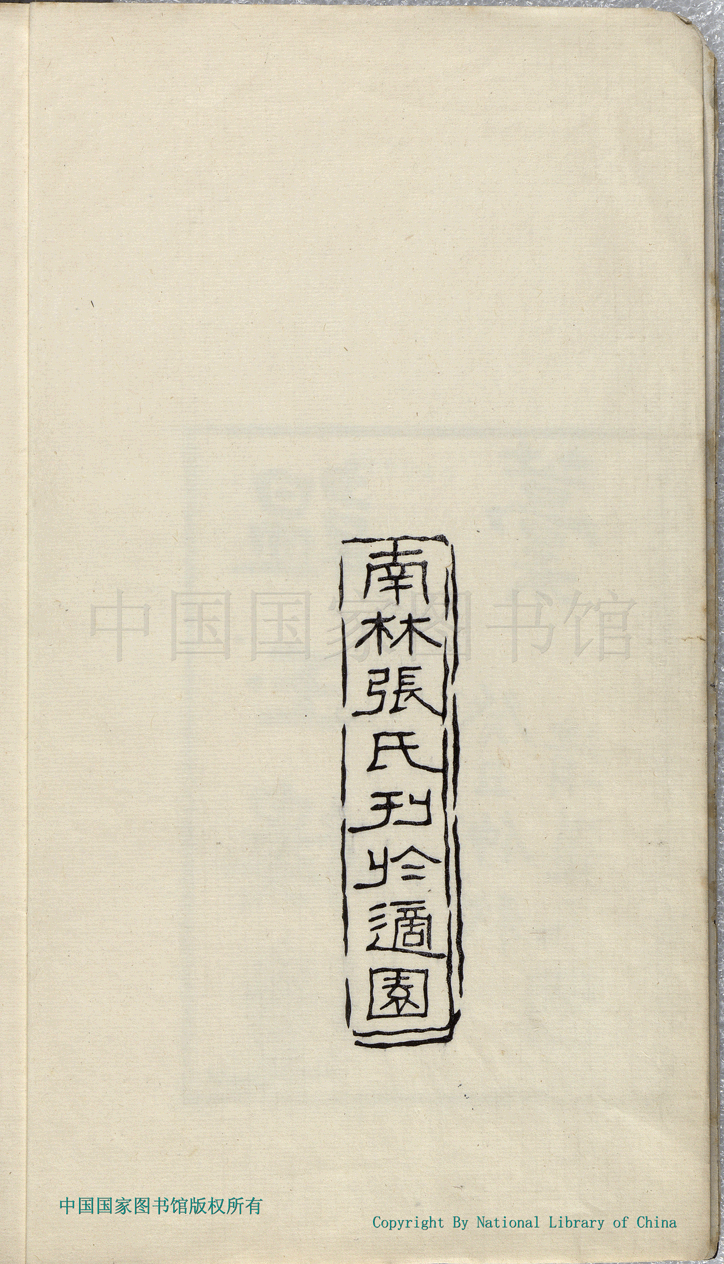 南林張氏刊於適園
中国国家图书馆
中国国家图书馆版权所有
Copyright By National Library of China